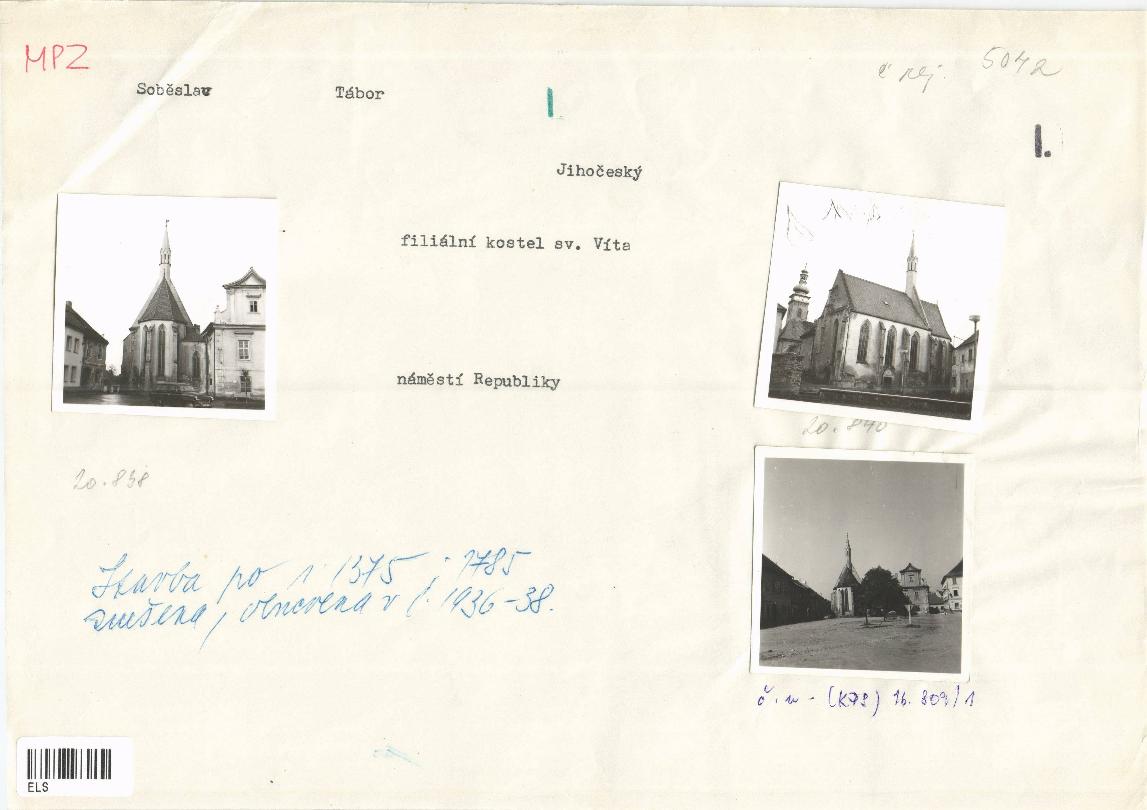 MPZ
Soběslav Tábor
č rej. 5042
I.
Jihočeský
filiální kostel sv. Víta
náměstí Republiky
20.838
20.840
Stavba po r. 1375, 1785
zrušena, obnovena v l. 1936-38.
č. n - (K98) 16.809/1
ELS